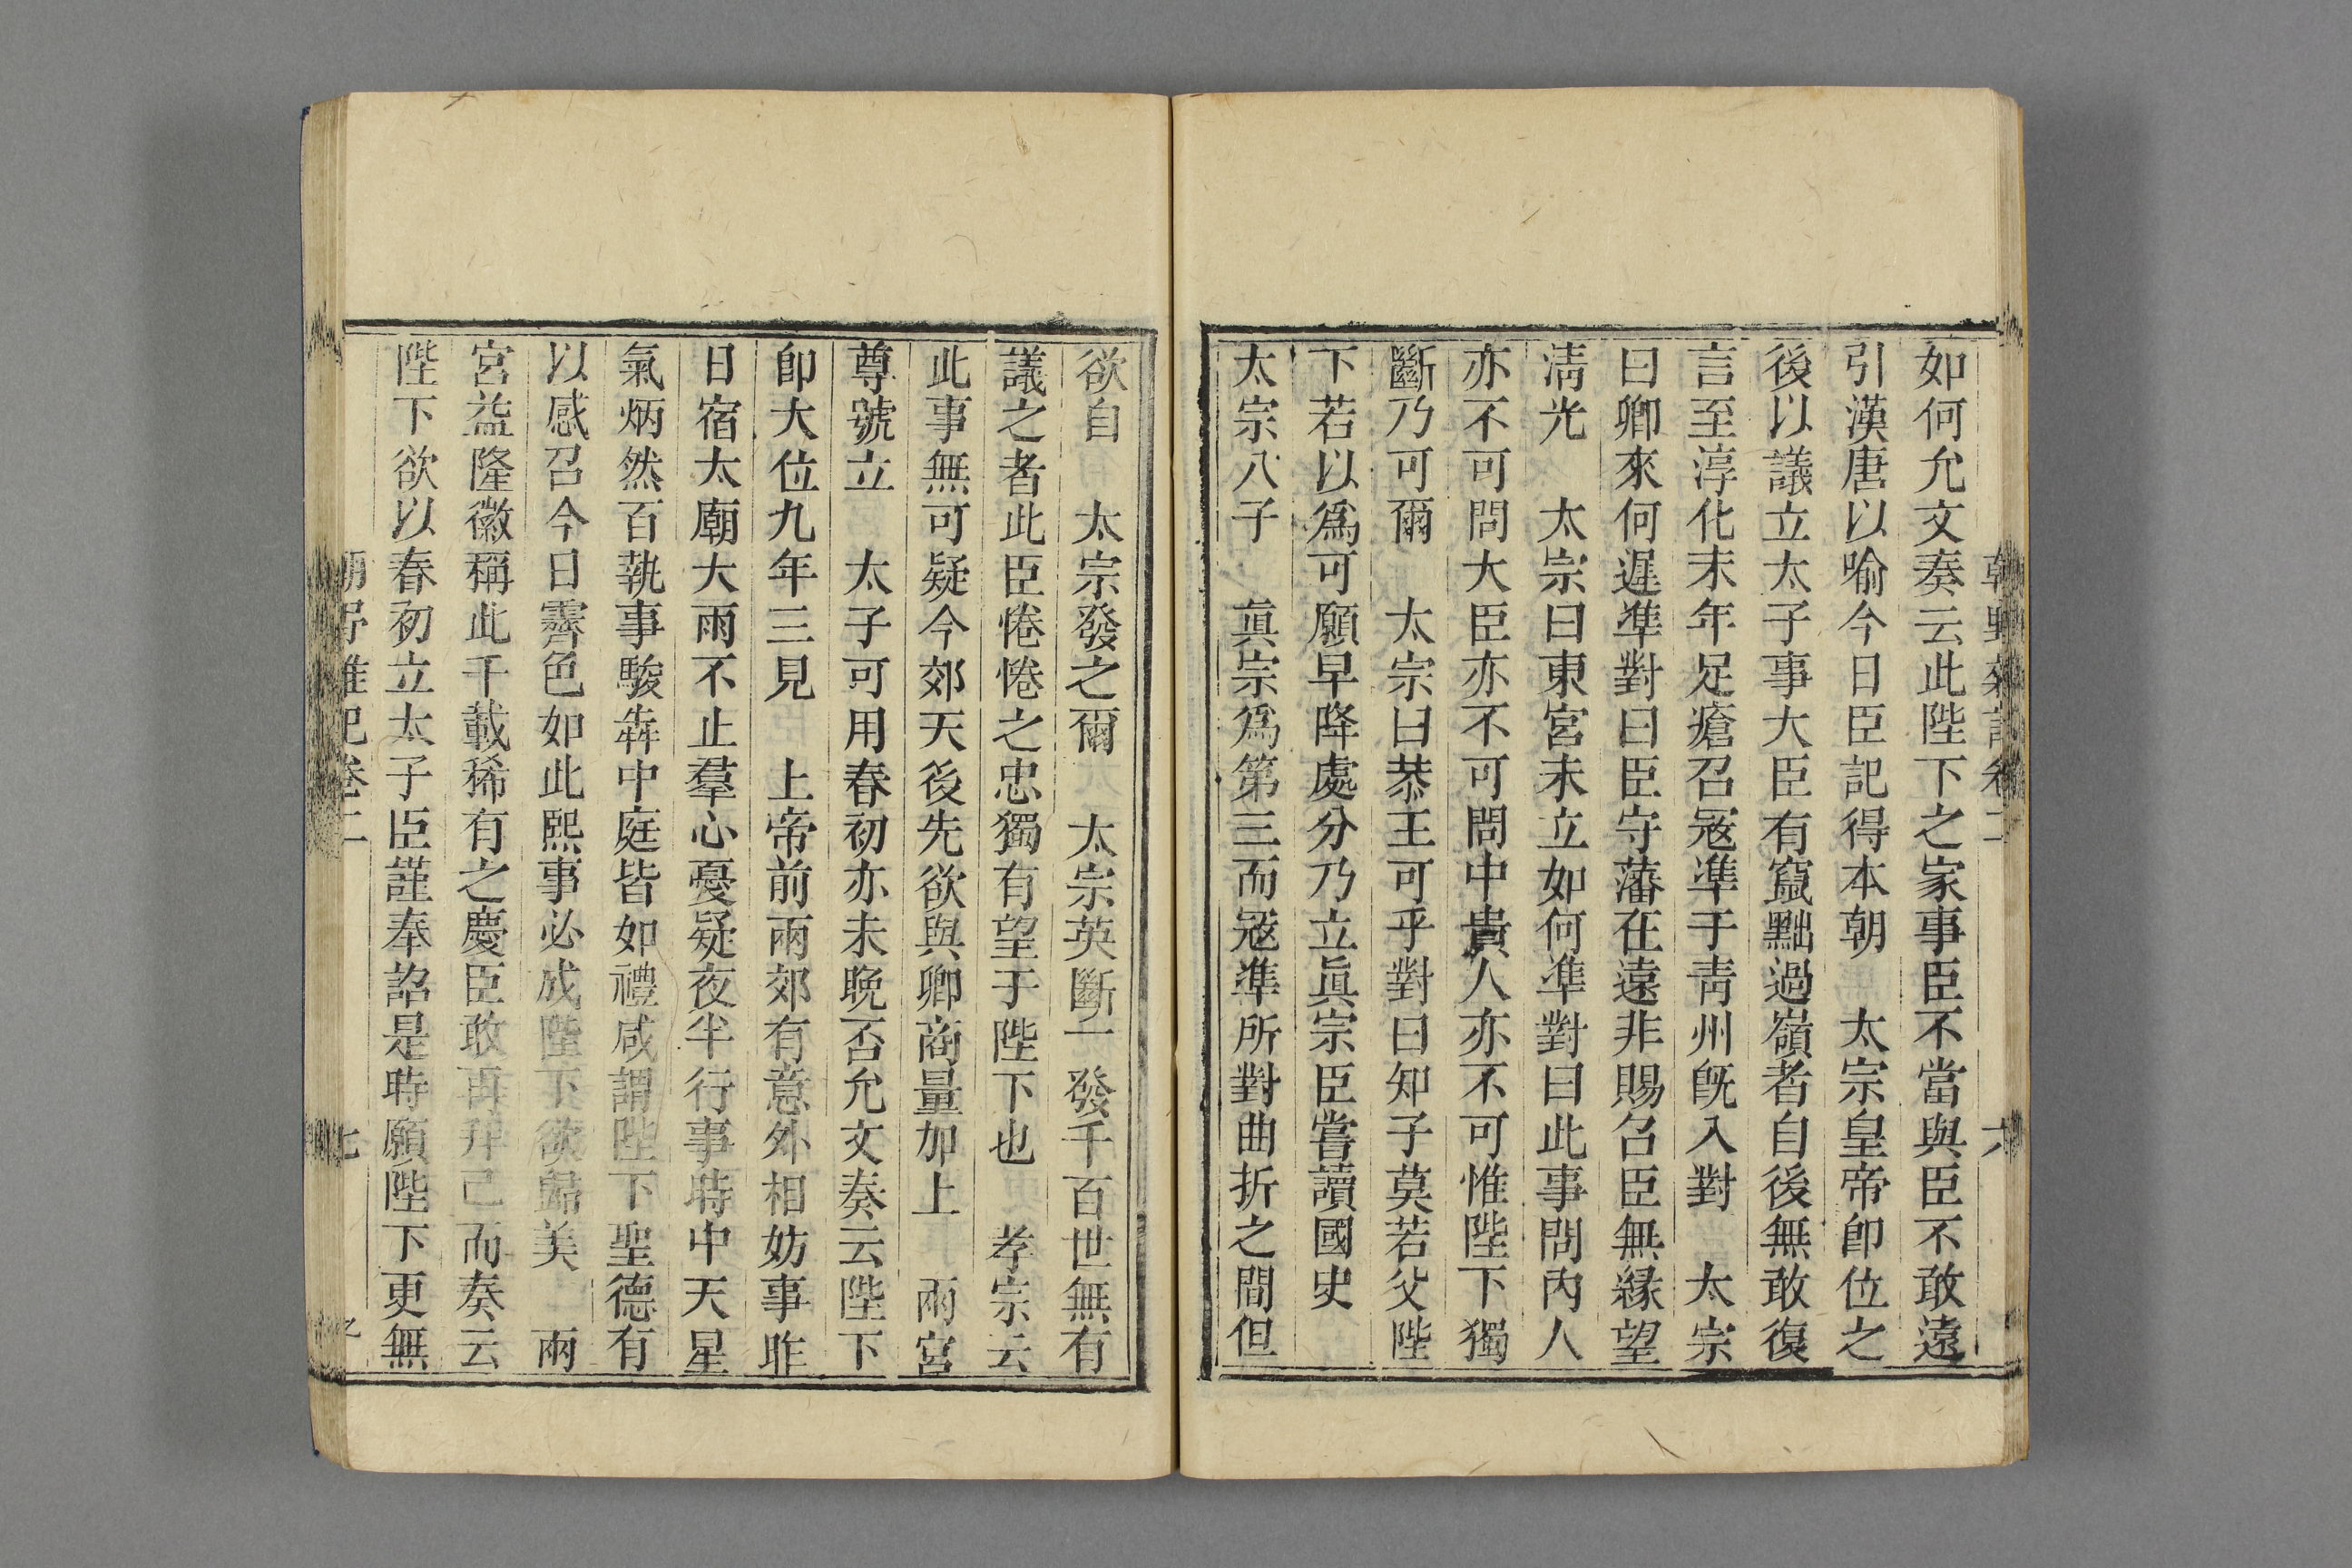 如何允文奏云此陛下之家事臣不當與臣不敢遠
引漢唐以喻今日臣記得本朝　太宗皇帝卽位之
後以議立太子事大臣有竄黜過嶺者自後無敢復
言至淳化末年足瘡召𡨥準于靑州旣入對　太宗
曰卿來何遲準對曰臣守藩在遠非賜召臣無緣望
淸光　太宗曰東宮未立如何準對曰此事問內人
亦不可問大臣亦不可問中貴人亦不可惟陛下獨
斷乃可爾　太宗曰恭王可乎對曰知子莫若父陛
下若以爲可願早降處分乃立眞宗臣嘗讀國史
太宗八子　眞宗爲第三而𡨥準所對曲折之間但
欲自　太宗發之爾　太宗英斷一發千百世無有
議之者此臣惓惓之忠獨有望于陛下也　孝宗云
此事無可疑今郊天後先欲與卿商量加上　兩宮
尊號立　太子可用春初亦未晚否允文奏云陛下
卽大位九年三見　上帝前兩郊有意外相妨事昨
日宿太廟大雨不止羣心憂疑夜半行事時中天星
氣炳然百執事駿犇中庭皆如禮咸謂陛下聖德有
以感召今日霽色如此熙事必成陛下欲歸美　兩
宮益隆徽稱此千載稀有之慶臣敢再拜已而奏云
陛下欲以春初立太子臣謹奉詔是時願陛下更無